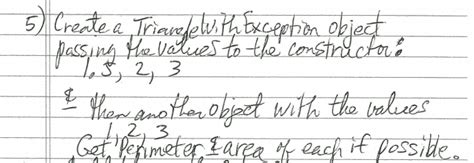 5) Create a TriangleWithException object
passing the values to the constructor:
1.5, 2, 3
& then another object with the values
1, 2, 3
Get Perimeter & area of each if possible.